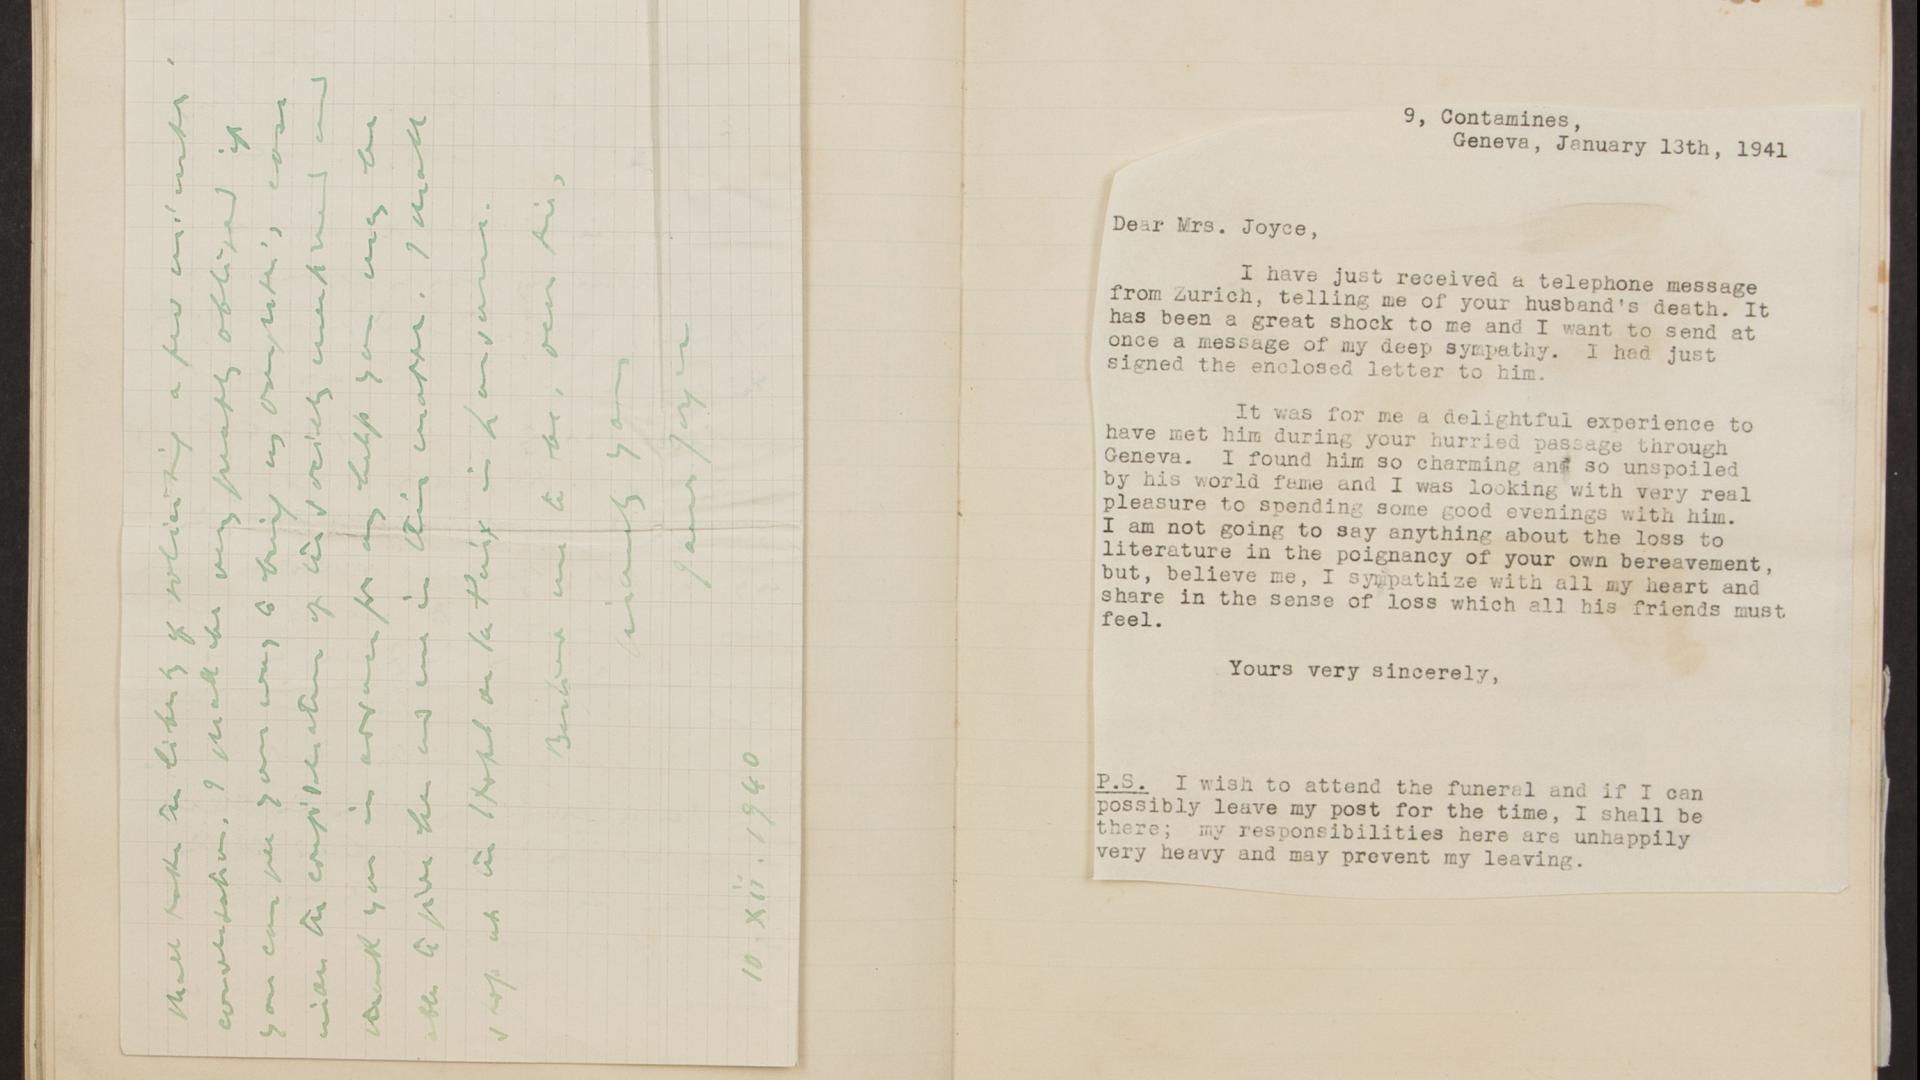 shall take the liberty of soliciting a few minutes'
conversation. I shall be very greatly obliged if
you can see your way to bring my case
under the consideration of the society mentioned and
thank you in advance for any help you may be
able to give her and me in this matter. I shall
stop at the Hotel de la Paix in Lausanne.
Believe me to be, dear sir,
sincerely yours
James Joyce
10.xii.1940
9, Contamines,
Geneva, January 13th, 1941
Dear Mrs. Joyce,
I have just received a telephone message
from Zurich, telling me of your husband's death. It
has been a great shock to me and I want to send at
once a message of my deep sympathy. I had just
signed the enclosed letter to him.
It was for me a delightful experience to
have met him during your hurried passage through
Geneva. I found him so charming and so unspoiled
by his world fame and I was looking with very real
pleasure to spending some good evenings with him.
I am not going to say anything about the loss to
literature in the poignancy of your own bereavement,
but, believe me, I sympathize with all my heart and
share in the sense of loss which all his friends must
feel.
Yours very sincerely,
P.S. I wish to attend the funeral and if I can
possibly leave my post for the time, I shall be
there; my responsibilities here are unhappily
very heavy and may prevent my leaving.